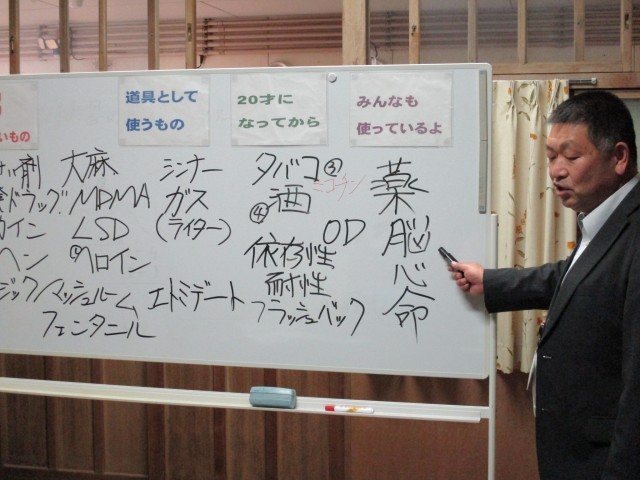 いもの
道具として
使うもの
20才に
なってから
みんなも
使っているよ
剤
大麻
シンナー
タバコ③
ニコチン
薬
ドラッグ
MDMA
ガス
④酒
カイン
LSD
(ライター)
OD
脳
ヘン
ヘロイン
依存性
心
ジックマッシュルーム
エトミデート
耐性
命
フェンタニル
フラッシュバック